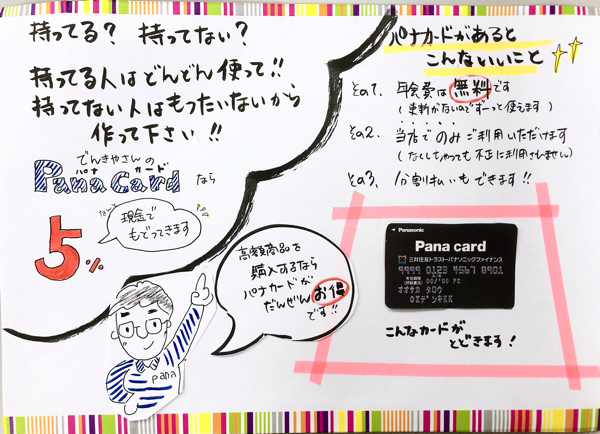 持ってる? 持ってない?
持ってる人はどんどん使って!!
持ってない人はもったいないから
作って下さい!!
でんきやさんの
パナ カード
Pana Card なら
なんと
現金で
もどってきます
5%
高額商品を
購入するなら
パナカードが
だんぜん お得
です!!
pana
パナカードがあると
こんないいこと
その1. 年会費は無料です
(更新がないのでずーっと使えます)
その2. 当店でのみご利用いただけます
(なくしちゃっても不正に利用されません)
その3. 分割払いもできます!!
Panasonic
Pana card
三井住友トラスト・パナソニックファイナンス
9999 0123 4567 8901
00/'00 PC
オオサカ タロウ
OXデンキKK
こんなカードが
とどきます!